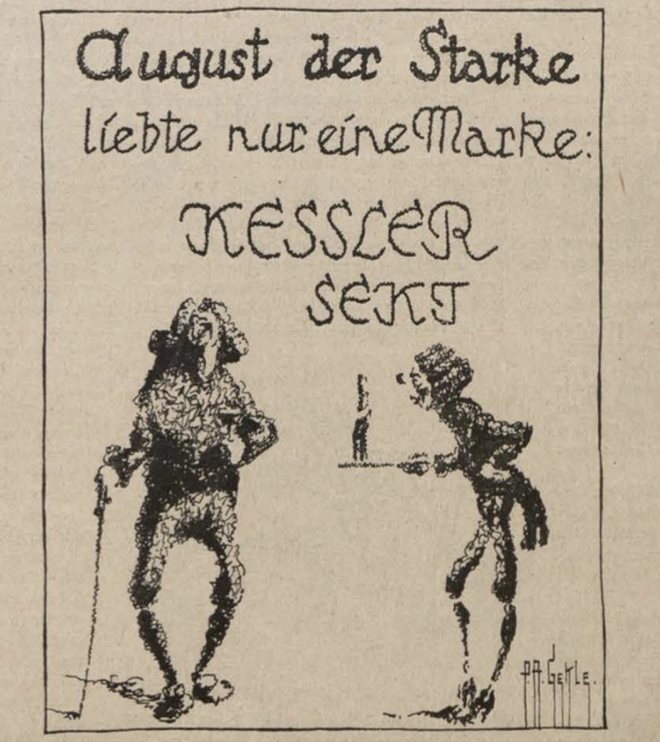 August der Starke
liebte nur eine Marke:
KESSLER
SEKT
P.A. GEKLE.